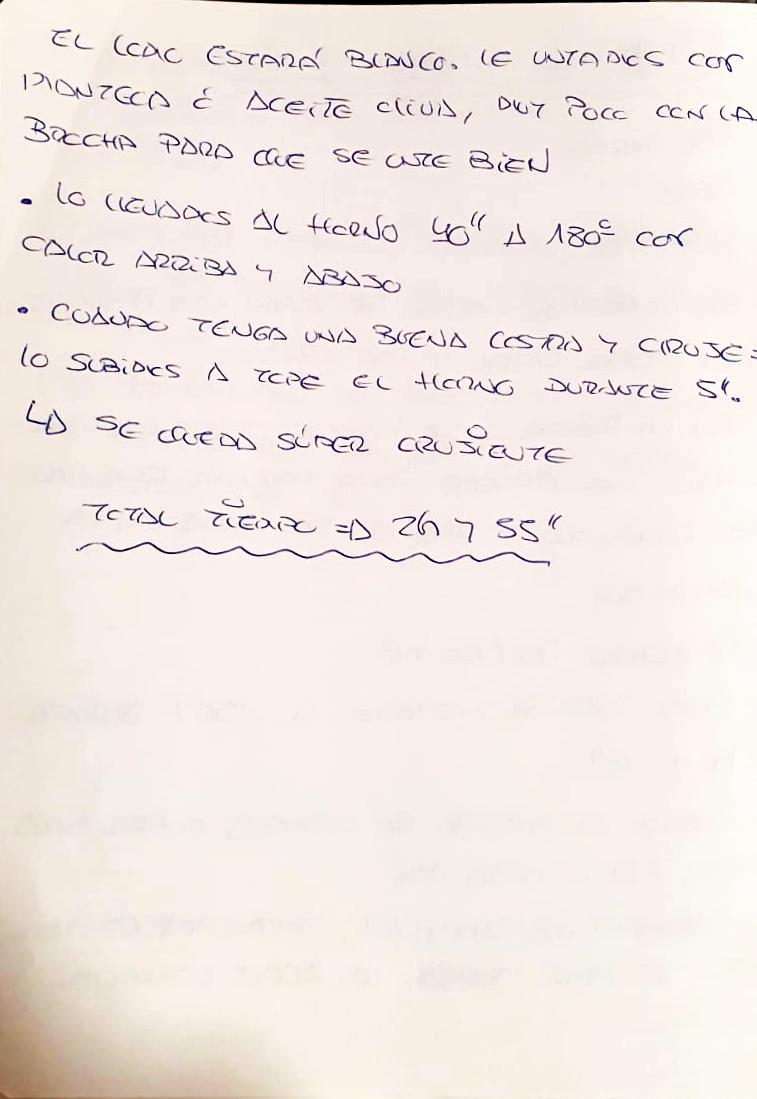 EL LECHÓN ESTARÁ BLANCO. LE UNTÁIS CON
MANTECA Ó ACEITE OLIVA, MUY POCO CON LA
BROCHA PARA QUE SE UNTE BIEN
• LO LLEVAMOS AL HORNO 40" A 180º CON
CALOR ARRIBA Y ABAJO
• CUANDO TENGA UNA BUENA COSTRA Y CRUJE =
LO SUBIMOS A TOPE EL HORNO DURANTE 5".
↳ SE QUEDA SÚPER CRUJIENTE
TOTAL TIEMPO => 2h y 55"